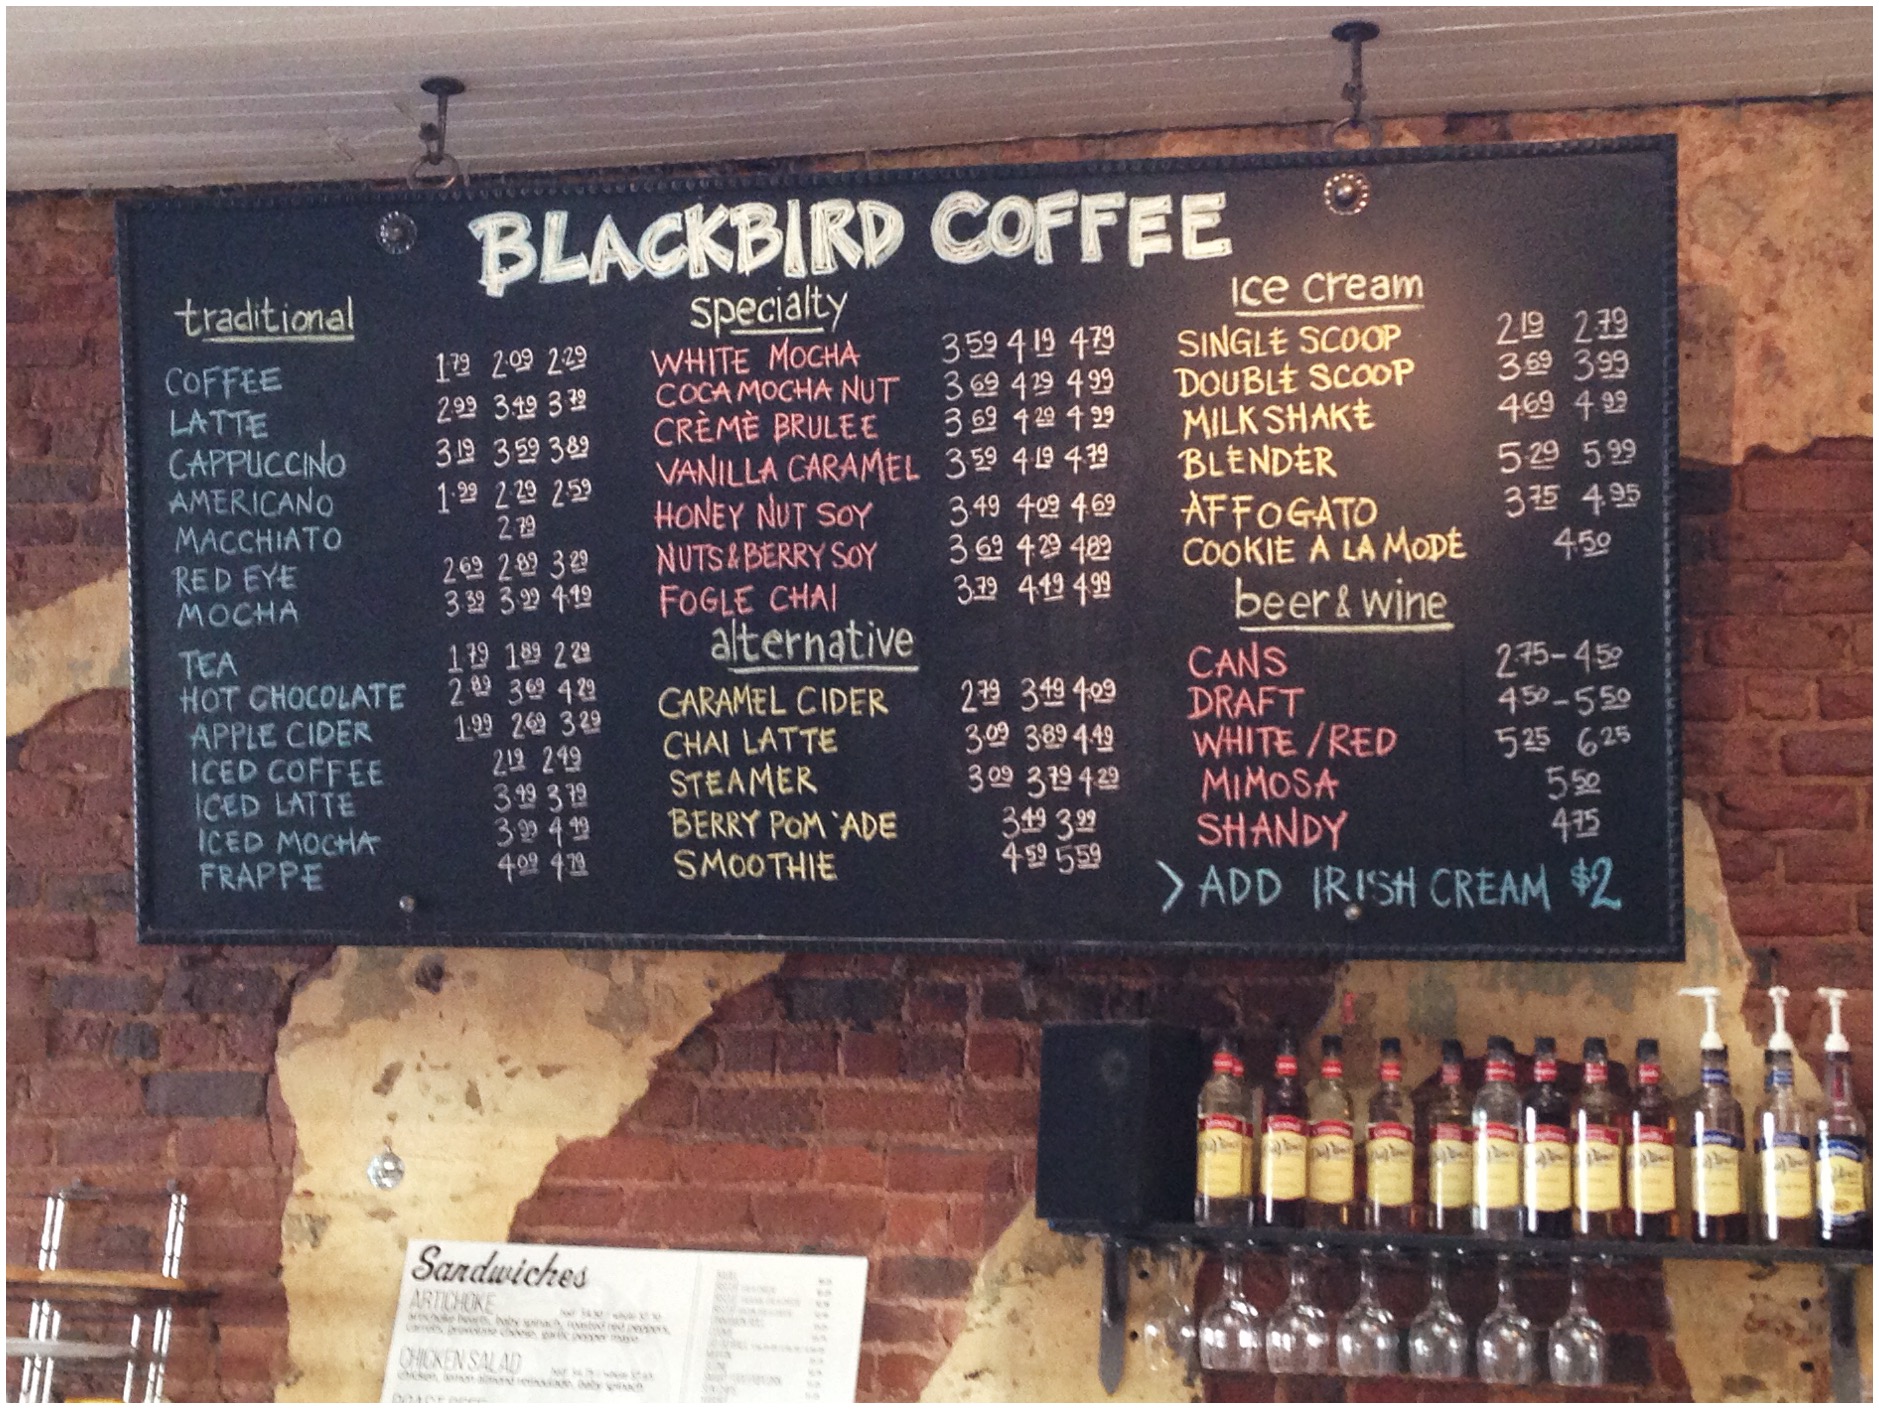 BLACKBIRD COFFEE
traditional
COFFEE 1.79 2.09 2.29
LATTE 2.99 3.49 3.79
CAPPUCCINO 3.19 3.59 3.89
AMERICANO 1.99 2.29 2.59
MACCHIATO 2.79
RED EYE 2.69 2.89 3.29
MOCHA 3.39 3.99 4.49
TEA 1.79 1.89 2.29
HOT CHOCOLATE 2.89 3.69 4.29
APPLE CIDER 1.99 2.69 3.29
ICED COFFEE 2.19 2.49
ICED LATTE 3.49 3.79
ICED MOCHA 3.99 4.49
FRAPPE 4.09 4.79
specialty
WHITE MOCHA 3.59 4.19 4.79
COCA MOCHA NUT 3.69 4.29 4.99
CRÈMÈ BRULEE 3.69 4.29 4.99
VANILLA CARAMEL 3.59 4.19 4.79
HONEY NUT SOY 3.49 4.09 4.69
NUTS & BERRY SOY 3.69 4.29 4.89
FOGLE CHAI 3.79 4.49 4.99
alternative
CARAMEL CIDER 2.79 3.49 4.09
CHAI LATTE 3.09 3.89 4.49
STEAMER 3.09 3.79 4.29
BERRY POM 'ADE 3.49 3.99
SMOOTHIE 4.59 5.59
ice cream
SINGLE SCOOP 2.19 2.79
DOUBLE SCOOP 3.69 3.99
MILKSHAKE 4.69 4.99
BLENDER 5.29 5.99
AFFOGATO 3.75 4.95
COOKIE A LA MODE 4.50
beer & wine
CANS 2.75-4.50
DRAFT 4.50-5.50
WHITE/RED 5.25 6.25
MIMOSA 5.50
SHANDY 4.75
> ADD IRISH CREAM $2
Sandwiches
ARTICHOKE
artichoke hearts, baby spinach, roasted red peppers,
carrots, provolone cheese, garlic pepper mayo
CHICKEN SALAD
chicken, lemon almond remoulade, baby spinach
ROAST BEEF